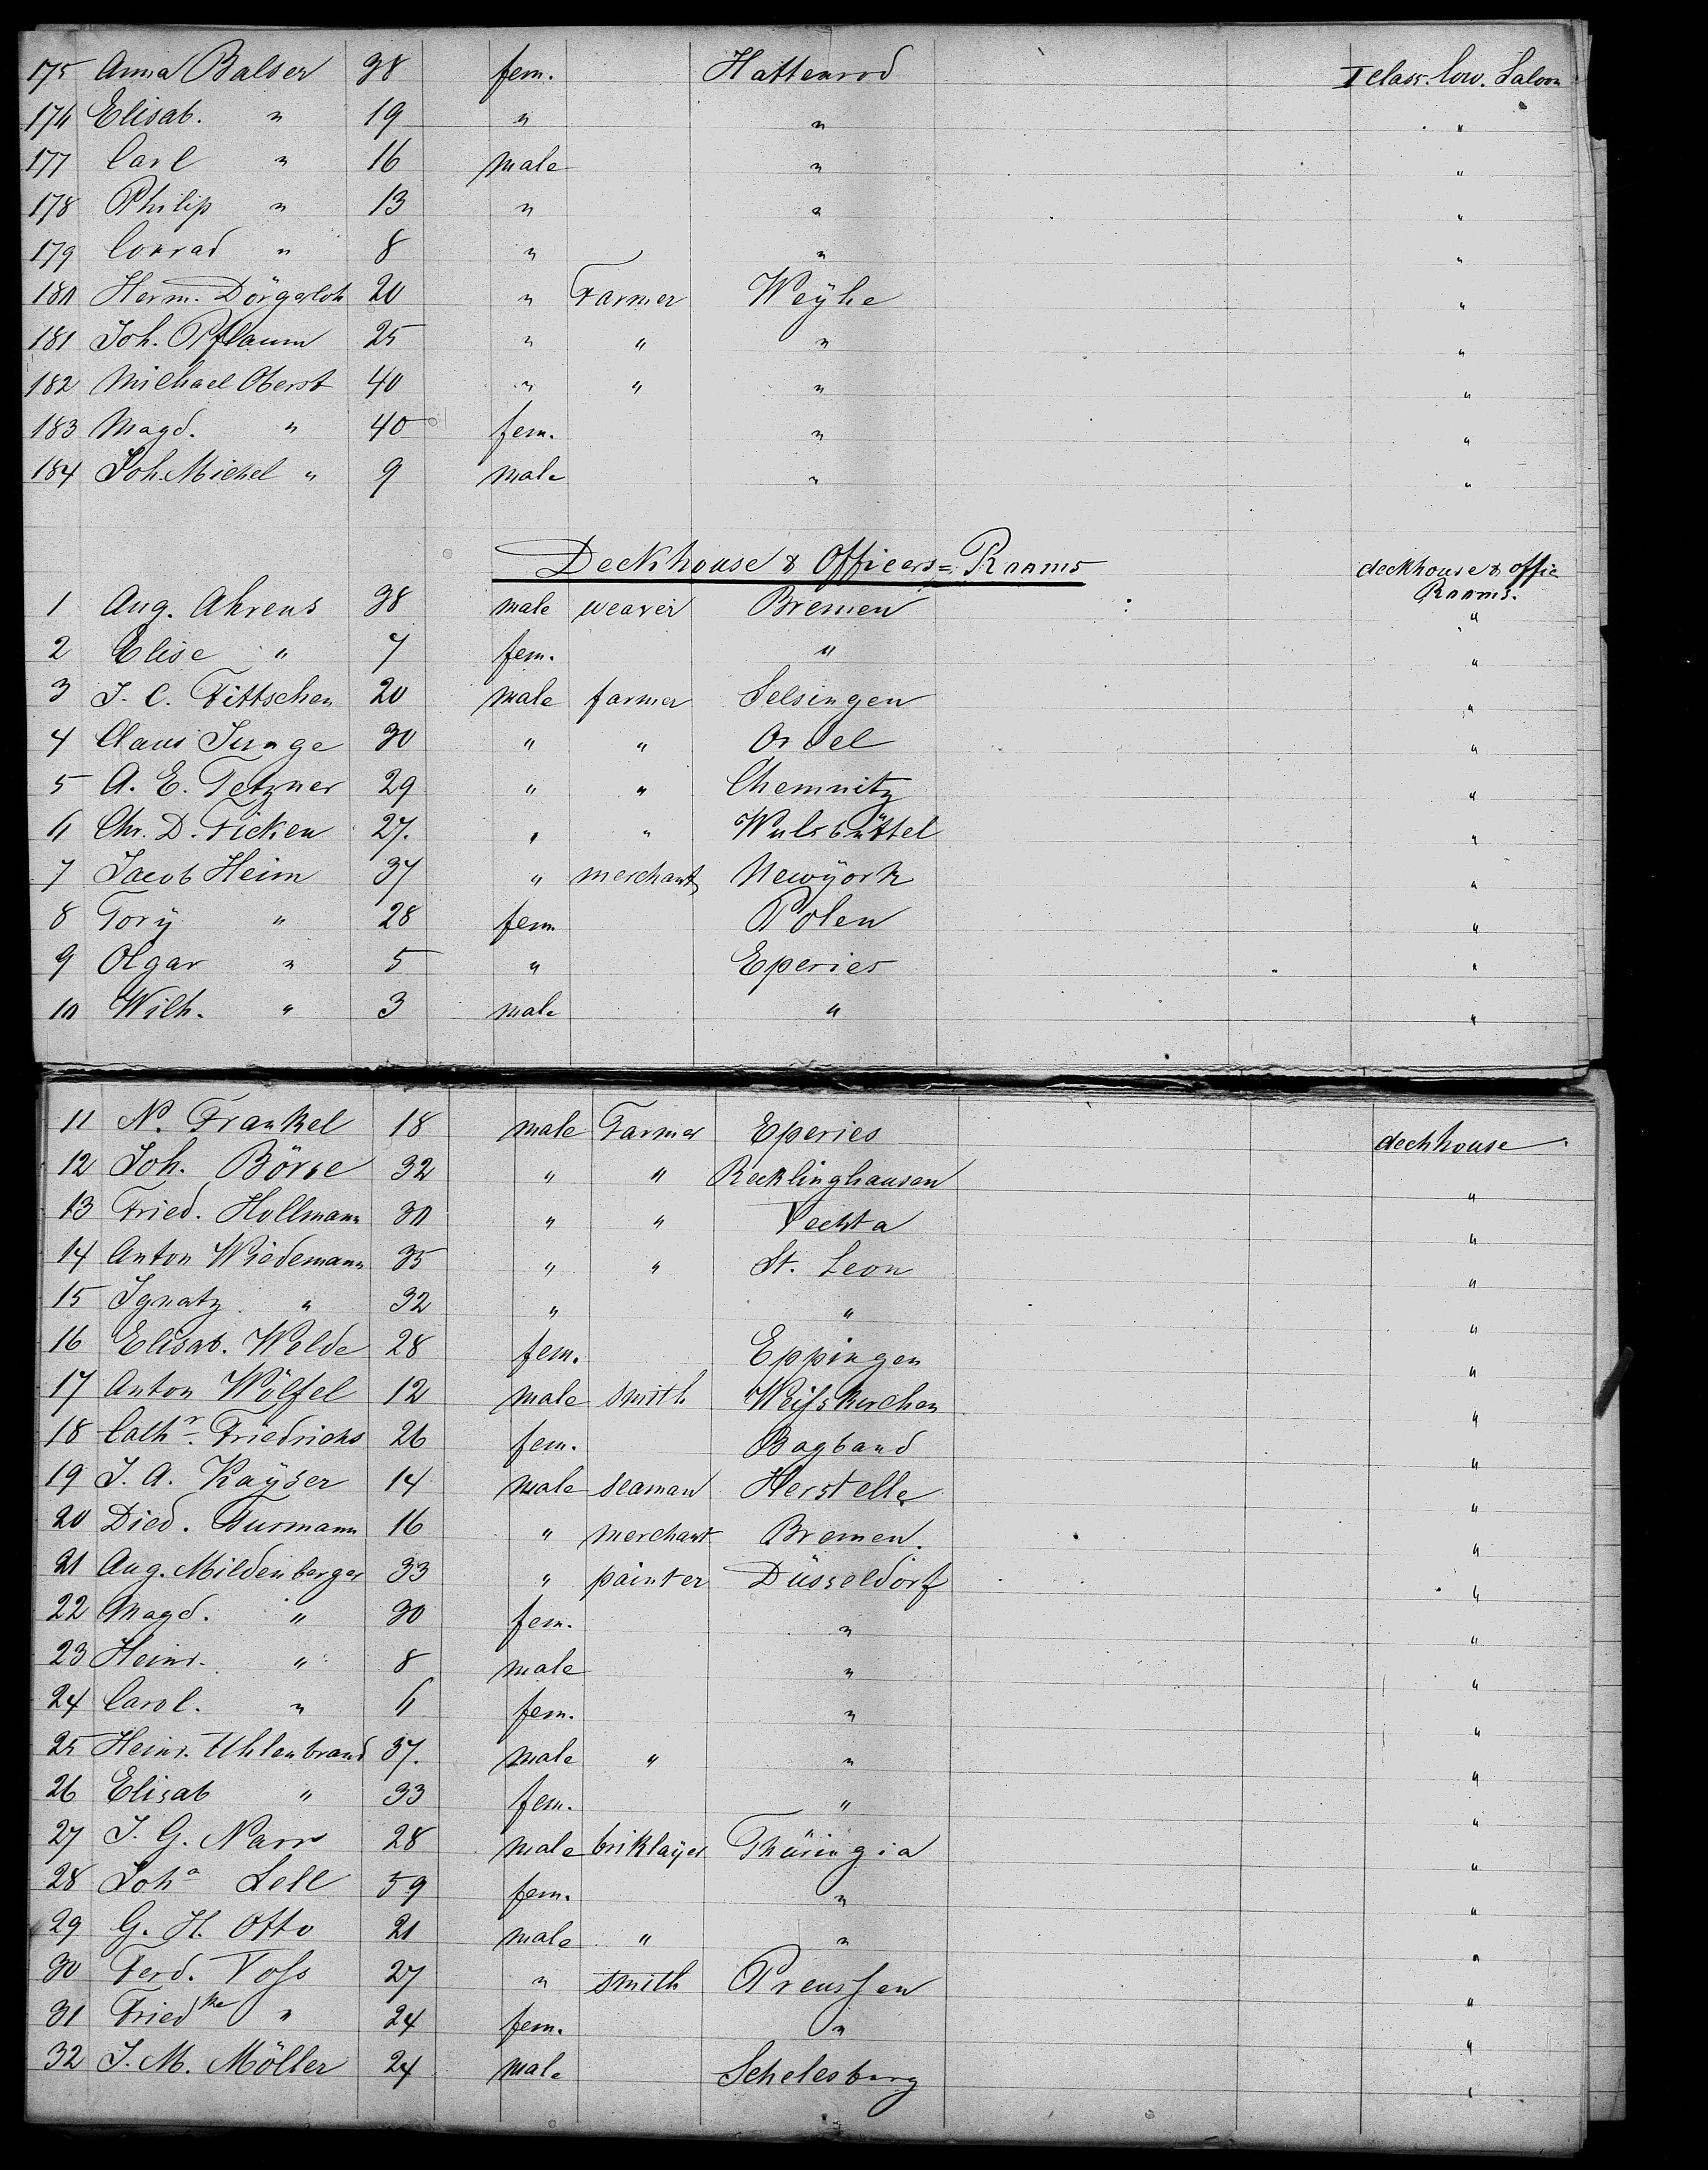 175 Anna Balser 38 fem. Hattenrod I class. low. Saloon
176 Elisab. " 19 " " "
177 Carl " 16 male " "
178 Philip " 13 " " "
179 Conrad " 8 " " "
180 Herm. Dörgeloh 20 " Farmer Weÿhe "
181 Joh. Pflaum 25 " " " "
182 Michael Oberst 40 " " " "
183 Magd. " 40 fem. " "
184 Joh. Michel " 9 male " "
Deckhouse & Officers=Rooms deckhouse & offic
Rooms.
1 Aug. Ahrens 38 male weaver Bremen "
2 Elise " 7 fem. " "
3 J. C. Fittschen 20 male farmer Selsingen "
4 Claus Junge 30 " " Orel "
5 A. E. Tetzner 29 " " Chemnitz "
6 Chr. D. Ficken 27. " " Wulsbüttel "
7 Jacob Heim 37 " merchant Newÿork "
8 Torÿ " 28 fem Polen "
9 Olgar " 5 " Eperies "
10 Wilh. " 3 male " "
11 N. Frankel 18 male Farmer Eperies deckhouse
12 Joh. Börse 32 " " Recklinghausen "
13 Fried. Hollmann 30 " " Vechta "
14 Anton Wiedemann 35 " " St. Leon "
15 Ignatz " 32 " " "
16 Elisab. Welde 28 fem. Eppingen "
17 Anton Wölfel 12 male smith Weisskirchen "
18 Cathr. Friedrichs 26 fem. Bagband "
19 J. A. Kaÿser 14 male seaman Herstelle "
20 Died. Furmann 16 " merchant Bremen. "
21 Aug. Mildenberger 33 " painter Düsseldorf "
22 Magd. " 30 fem. " "
23 Heinr. " 8 male " "
24 Carol. " 6 fem. " "
25 Heinr. Uhlenbrand 37. male " " "
26 Elisab " 33 fem. " "
27 J. G. Narr 28 male briklaÿer Thüringia "
28 Joha Lell 59 fem. " "
29 G. H. Otto 21 male " " "
30 Ferd. Voss 27 " smith Preussen "
31 Friedke " 24 fem. " "
32 J. M. Möller 24 male Schelesburg "